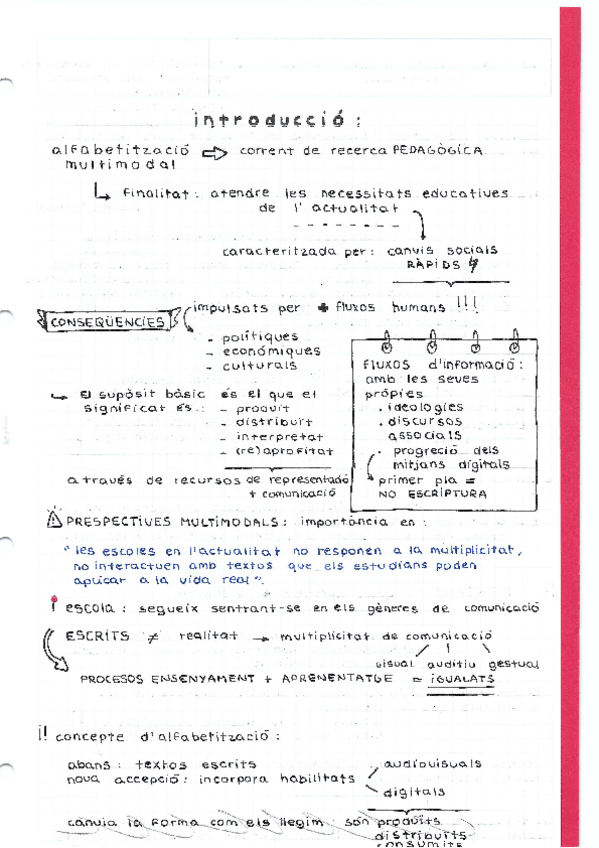 introducció :
alfabetització ⇨ corrent de recerca PEDAGÒGICA
multimodal
↳ Finalitat : atendre les necessitats educatives
de l'actualitat
caracteritzada per : canvis socials
RÀPIDS
CONSEQÜENCIES
impulsats per + fluxos humans !!!
- polítiques
- econòmiques
- culturals
Fluxos d'informació :
amb les seves
pròpies
. ideologies
. discursos
associals
. progreció dels
mitjans digitals
primer pla =
NO ESCRIPTURA
↳ El supòsit bàsic és el que el
significat és : - produït
- distribuït
- interpretat
- (re)aprofitat
através de recursos de representació
+ comunicació
⚠ PRESPECTIVES MULTIMODALS : importància en :
" les escoles en l'actualitat no responen a la multiplicitat,
no interactuen amb textos que els estudians poden
aplicar a la vida real ".
! ESCOLA : segueix sentrant-se en els gèneres de comunicació
ESCRITS ≠ realitat → multiplicitat de comunicació
visual auditiu gestual
PROCESOS ENSENYAMENT + APRENENTATGE = IGUALATS
¡! concepte d'alfabetització :
abans : textos escrits
nova accepció : incorpora habilitats
. audiovisuals
digitals
canvia la forma com els llegim : són produïts
distribuïts
consumits